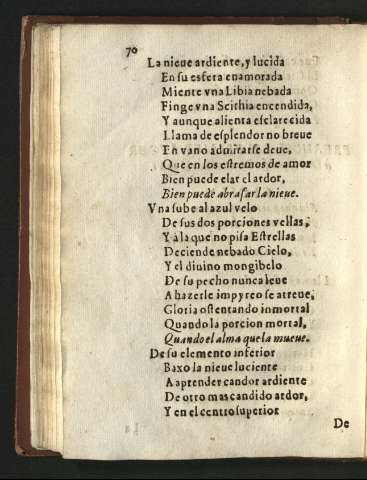 70
La nieue ardiente, y lucida
En su esfera enamorada
Miente vna Libia nebada
Finge vna Scithia encendida,
Y aunque alienta esclarecida
Llama de esplendor no breue
En vano admirarse deue,
Que en los estremos de amor
Bien puede elar el ardor,
Bien puede abrasar la nieue.
Vna sube al azul velo
De sus dos porciones vellas,
Y à la que no pisa Estrellas
Deciende nebado Cielo,
Y el diuino mongibelo
De su pecho nunca leue
A hazerle impyreo se atreue,
Gloria ostentando inmortal
Quando la porcion mortal,
Quando el alma que la mueue.
De su elemento inferior
Baxo la nieue luciente
A aprender candor ardiente
De otro mas candido ardor,
Y en el centro superior
De